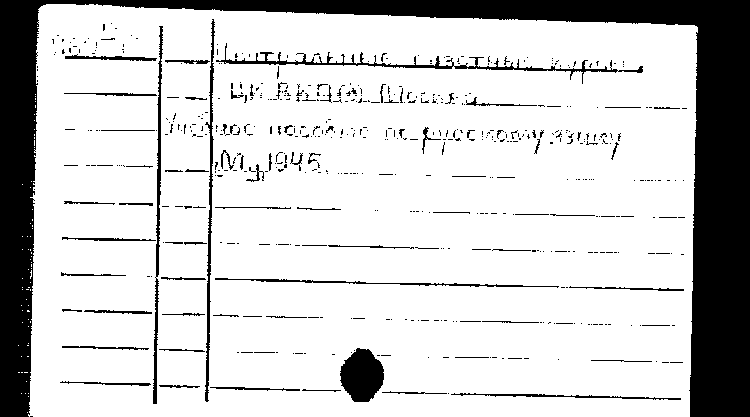 Центральные газетные курсы
ЦК ВКП(б) Москва
Учебное пособие по русскому языку
М., 1945.